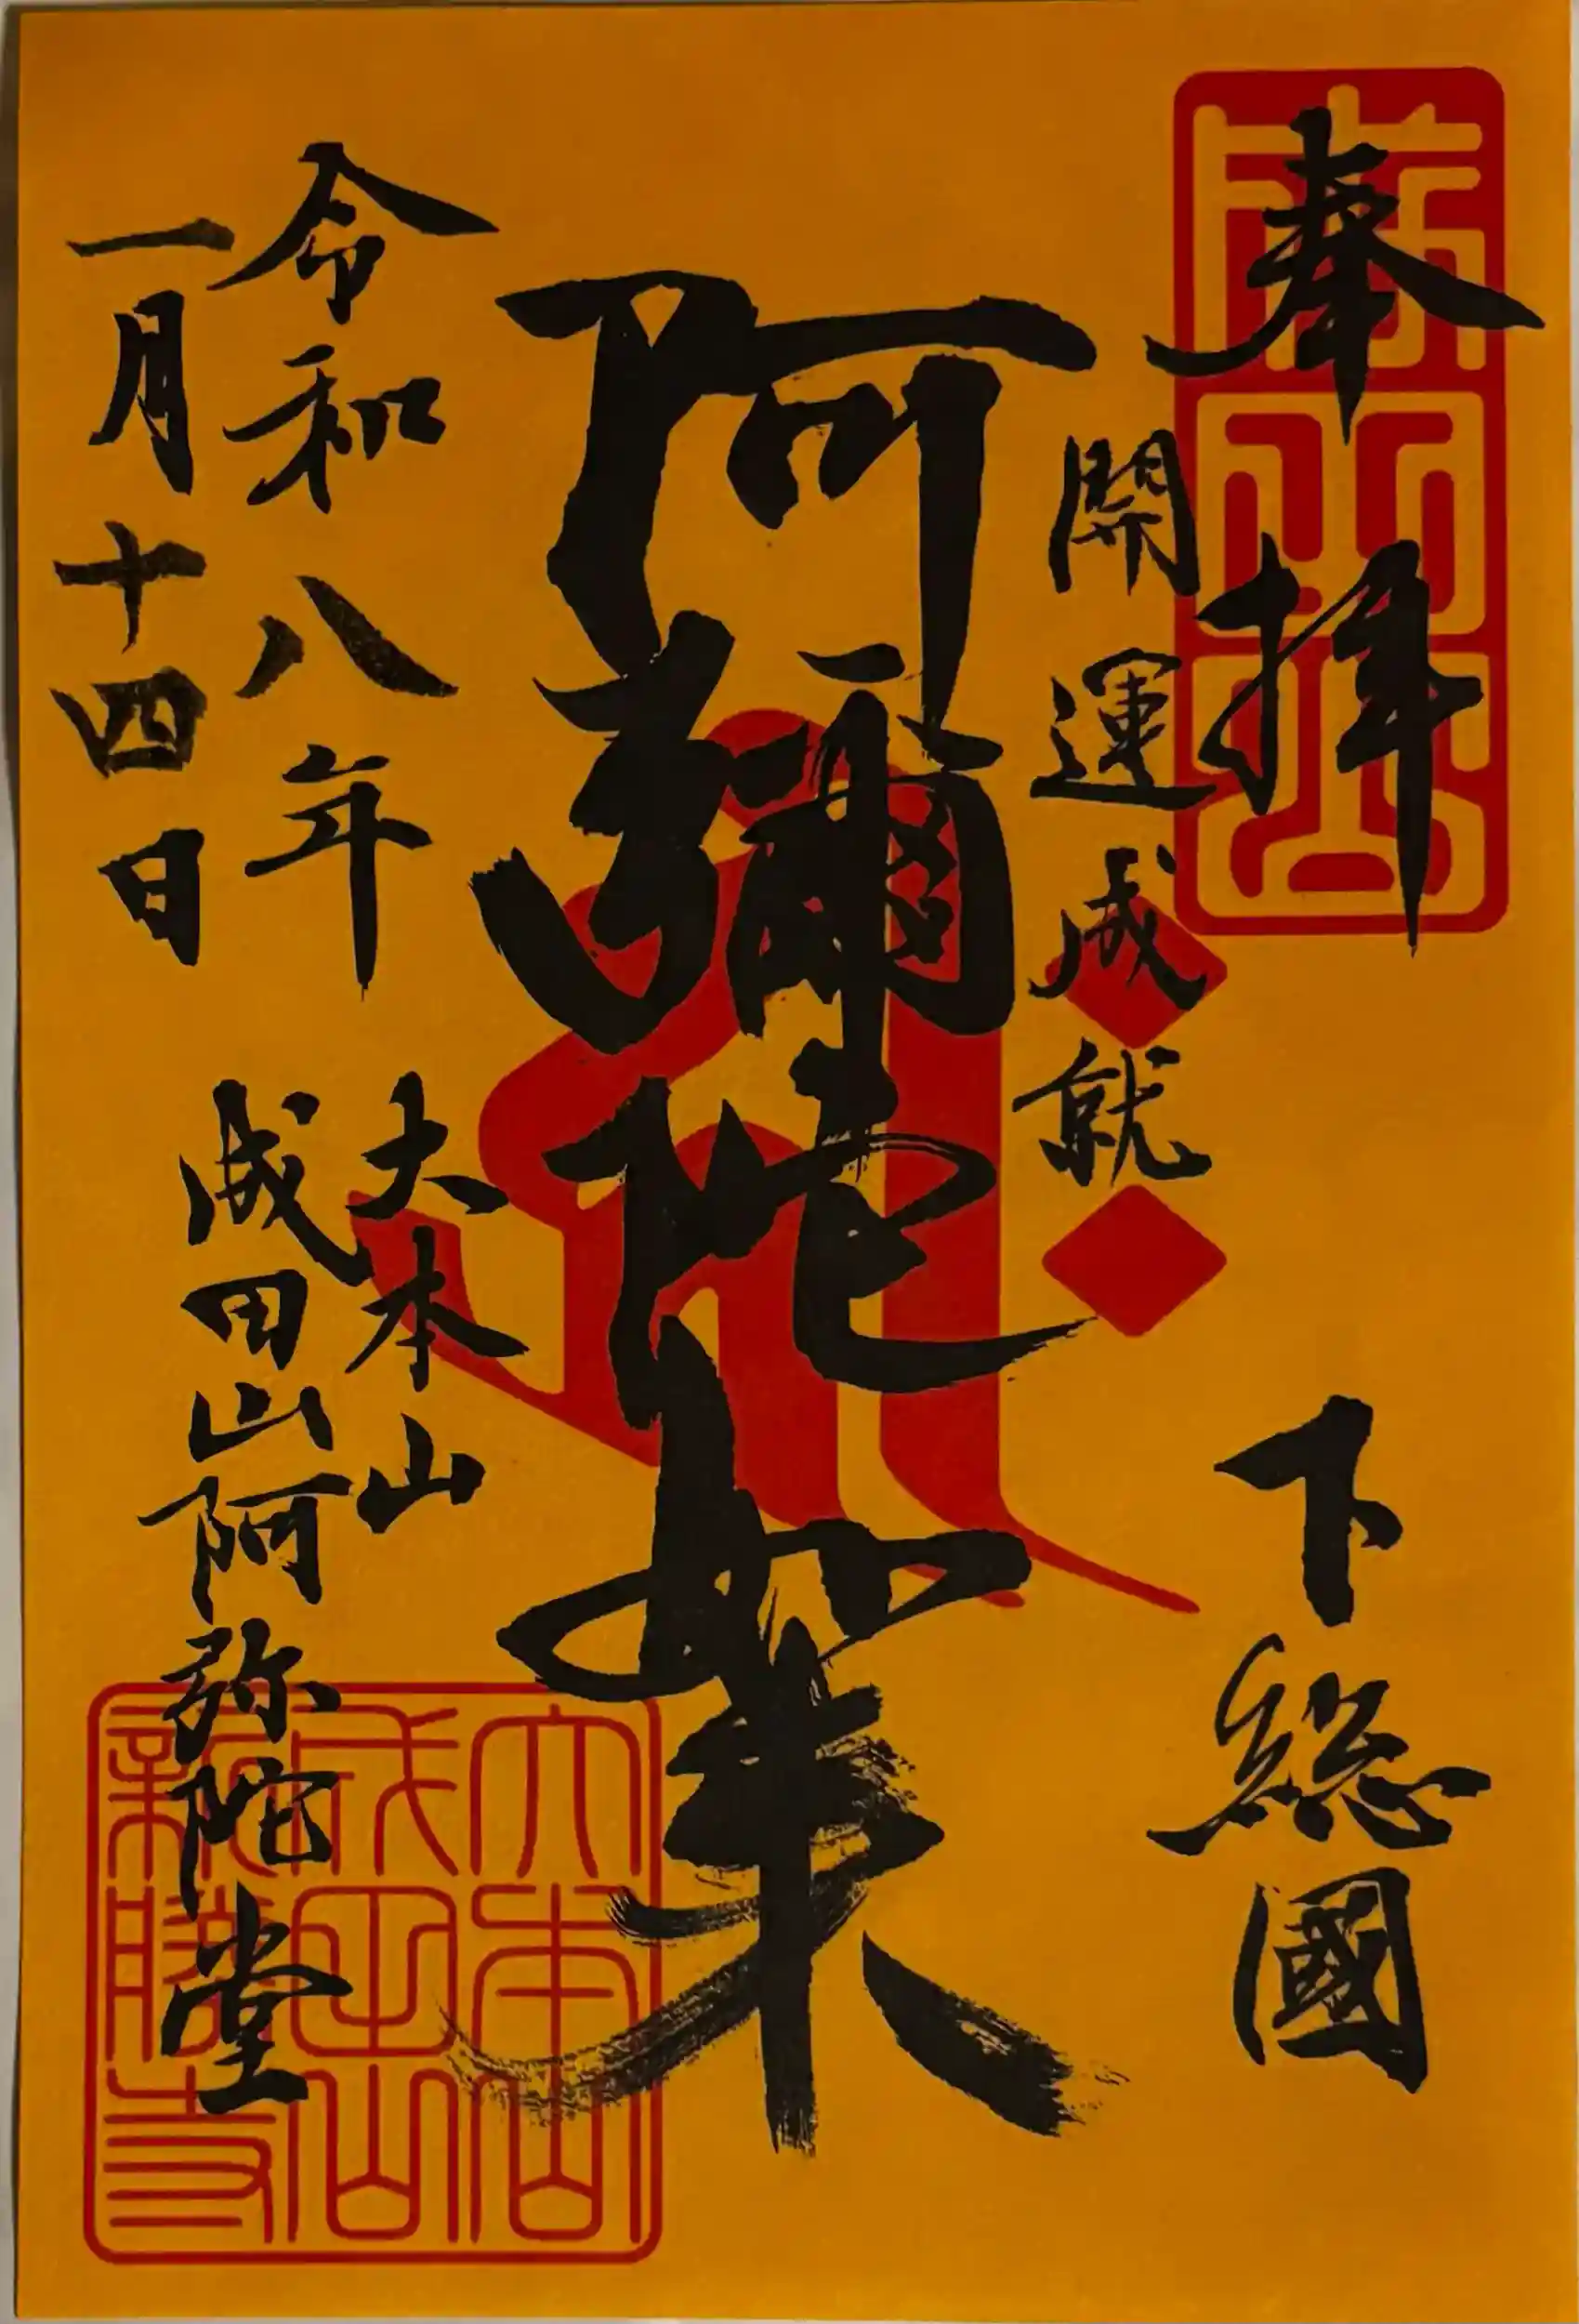 奉拝
下総國
開運成就
阿彌陀如来
令和八年
一月十四日
大本山
成田山阿弥陀堂
大本山
成田山
新勝寺